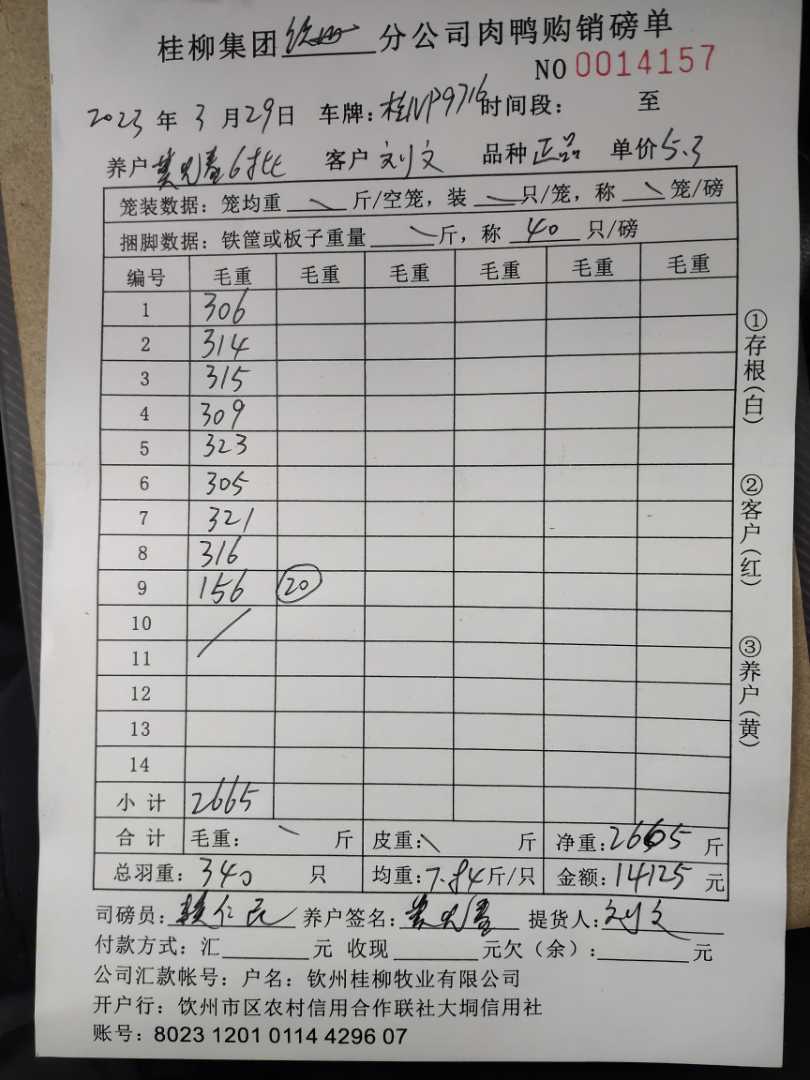 桂柳集团钦州分公司肉鸭购销磅单
NO 0014157
2023年3月29日 车牌:桂NP9716 时间段: 至
养户 6批 客户 刘文 品种 正品 单价5.3
笼装数据:笼均重 \ 斤/空笼,装 \ 只/笼,称 \ 笼/磅
捆脚数据:铁筐或板子重量 \ 斤,称 40 只/磅
编号 毛重 毛重 毛重 毛重 毛重 毛重
1 306
2 314
3 315
4 309
5 323
6 305
7 321
8 316
9 156 20
10
11
12
13
14
小计 2665
合计 毛重: \ 斤 皮重: \ 斤 净重:2665斤
总羽重:340 只 均重:7.84斤/只 金额:14125元
司磅员: 养户签名: 提货人:刘文
付款方式:汇 元 收现 元欠(余): 元
公司汇款帐号:户名:钦州桂柳牧业有限公司
开户行:饮州市区农村信用合作联社大垌信用社
账号:8023 1201 0114 4296 07
①存根(白)
②客户(红)
③养户(黄)